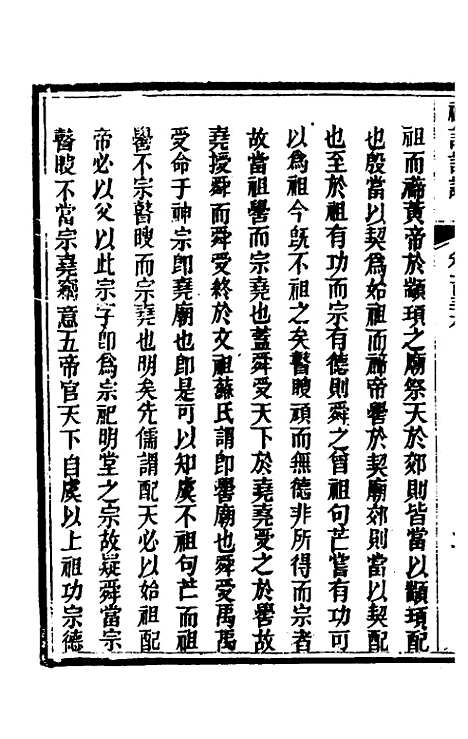 祖而禘黃帝於顓頊之廟祭天於郊則皆當以顓頊配
也殷當以契爲始祖而禘帝嚳於契廟郊則當以契配
也至於祖有功而宗有德則舜之曾祖句芒嘗有功可
以爲祖今旣不祖之矣瞽瞍頑而無德非所得而宗者
故當祖嚳而宗堯也蓋舜受天下於堯堯受之於嚳故
堯授舜而舜受終於文祖蘇氏謂卽嚳廟也舜受禹禹
受命于神宗卽堯廟也卽是可以知虞不祖句芒而祖
嚳不宗瞽瞍而宗堯也明矣先儒謂配天必以始祖配
帝必以父以此宗字卽爲宗祀明堂之宗故疑舜當宗
瞽瞍不當宗堯竊意五帝官天下自虞以上祖功宗德